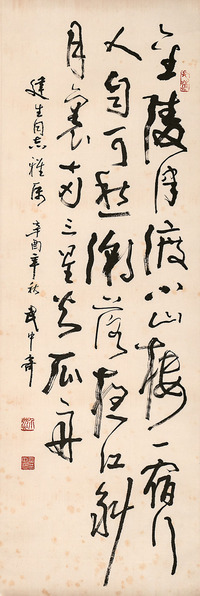 金陵津渡小山楼一宿行
人自可愁潮落夜江斜
月裏两三星火是瓜州
建生同志雅属
辛酉年秋 武中奇